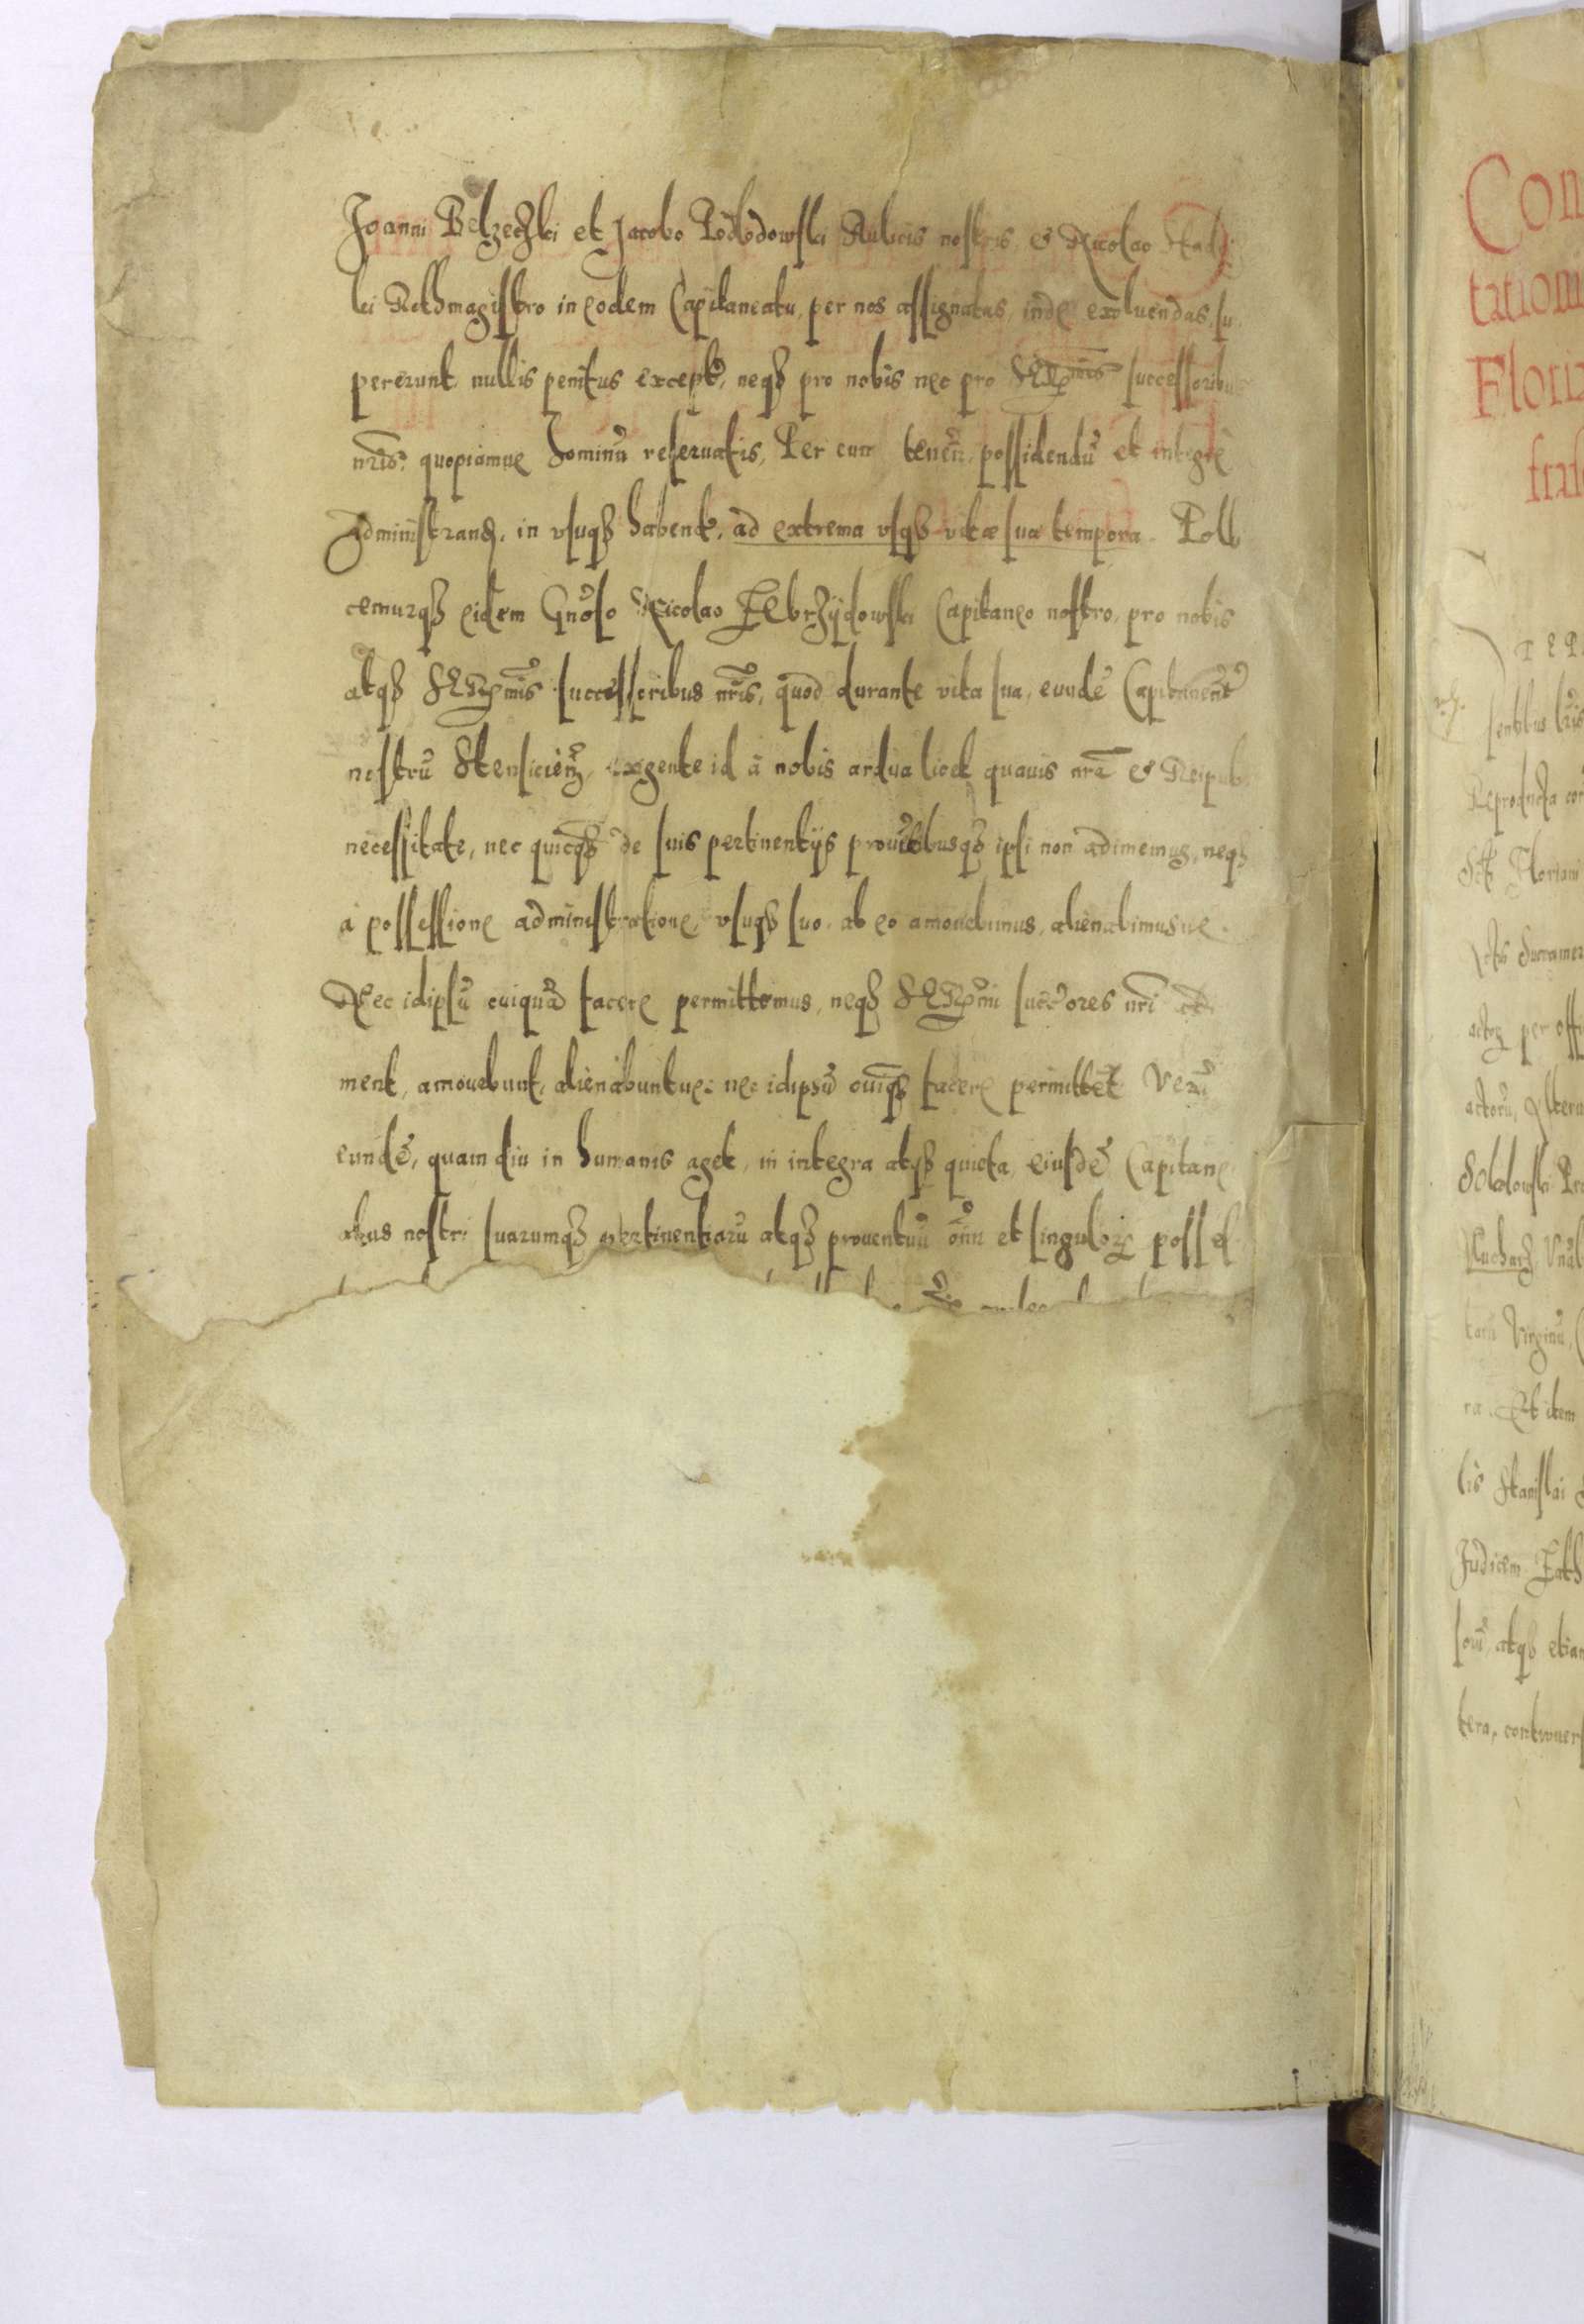 Joanni Belzeczki et Jacobo Podlodowski Aulicis nostris, & Nicolao Stad
ki Rothmagistro in eodem Capitaneatu, per nos assignatas, inde exoluendas, su
pererunt, nullis penitus except, neqz pro nobis nec pro SERmis successoribus
nris, quopiamue hominu reseruatis, Per eum tenen, possidendu et integre
administrand, in vsuqz habent, ad extrema vsqz vitæ suæ tempora. Polli
cemurqz eidem Gnoso Nicolao Zebrzÿdowski Capitaneo nostro, pro nobis
atqz SERmis successoribus nris, quod durante vita sua, eundē Capitaneat
nostrū Stensicien, exigente id à nobis ardua licet quauis nra & Reipub
necessitate, nec quicqz de suis pertinentÿs prouētibusqz ipsi non adimemus, neqz
à possessione administratione, vsuqz suo, ab eo amouebimus, alienabimusue.
Nec idipsū cuiquā facere permittemus, neqz SERmi succores nri adi
ment, amouebunt, alienabuntue: nec idipsū cuiqz facere permittēt Verū
eundē, quam diu in humanis aget, in integra atqz quieta, eiusdē Capitane
atus nostri suarumqz pertinentiarū atqz prouentuū oīm et singulor posses
Con
tationi
Flori
Reproducta
Floriani
Sacramen
actor per off
actoru, Altera
Sokolowski
tarū Virginū,
ra. Et item
lis Stanislai
Judicem
atqz etiam
tera, controuers